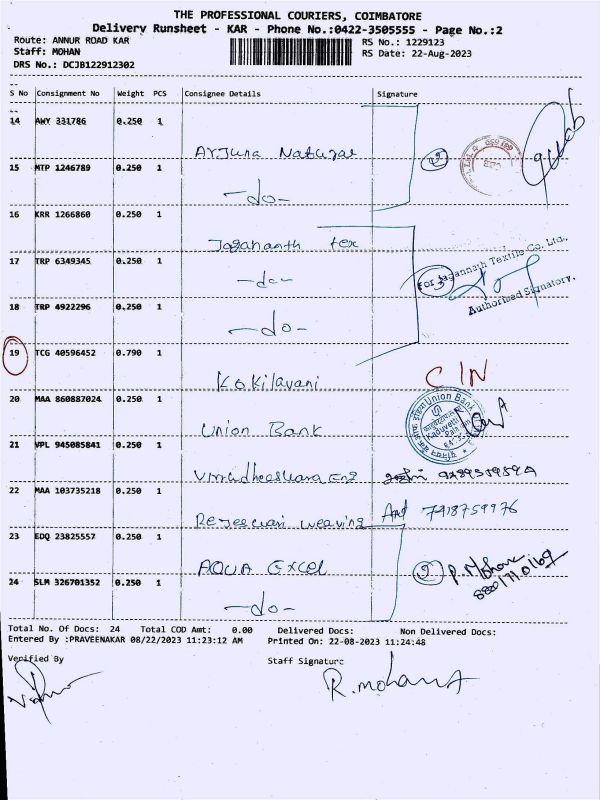 THE PROFESSIONAL COURIERS, COIMBATORE
Delivery Runsheet - KAR - Phone No.:0422-3505555 - Page No.:2
Route: ANNUR ROAD KAR RS No.: 1229123
Staff: MOHAN RS Date: 22-Aug-2023
DRS No.: DCJB122912302
S No Consignment No Weight PCS Consignee Details Signature
14 AWY 331786 0.250 1
Arjuna Natural
15 MTP 1246789 0.250 1
-do-
16 KRR 1266860 0.250 1
Jagananth tex
17 TRP 6349345 0.250 1
-do-
For Jagannath Textile Co. Ltd.,
3
Authorised Signatory.
18 TRP 4922296 0.250 1
-do-
19 TCG 40596452 0.790 1
Kokilavani CIN
20 MAA 860887024 0.250 1
Union Bank
Union Bank
21 VPL 945085841 0.250 1
22 MAA 103735218 0.250 1
weaving 7918759976
23 EDQ 23825557 0.250 1
AQUA Excel
2 P. Mohan
24 SLM 326701352 0.250 1
-do-
Total No. Of Docs: 24 Total COD Amt: 0.00 Delivered Docs: Non Delivered Docs:
Entered By :PRAVEENAKAR 08/22/2023 11:23:12 AM Printed On: 22-08-2023 11:24:48
Verified By Staff Signature
R. mohan